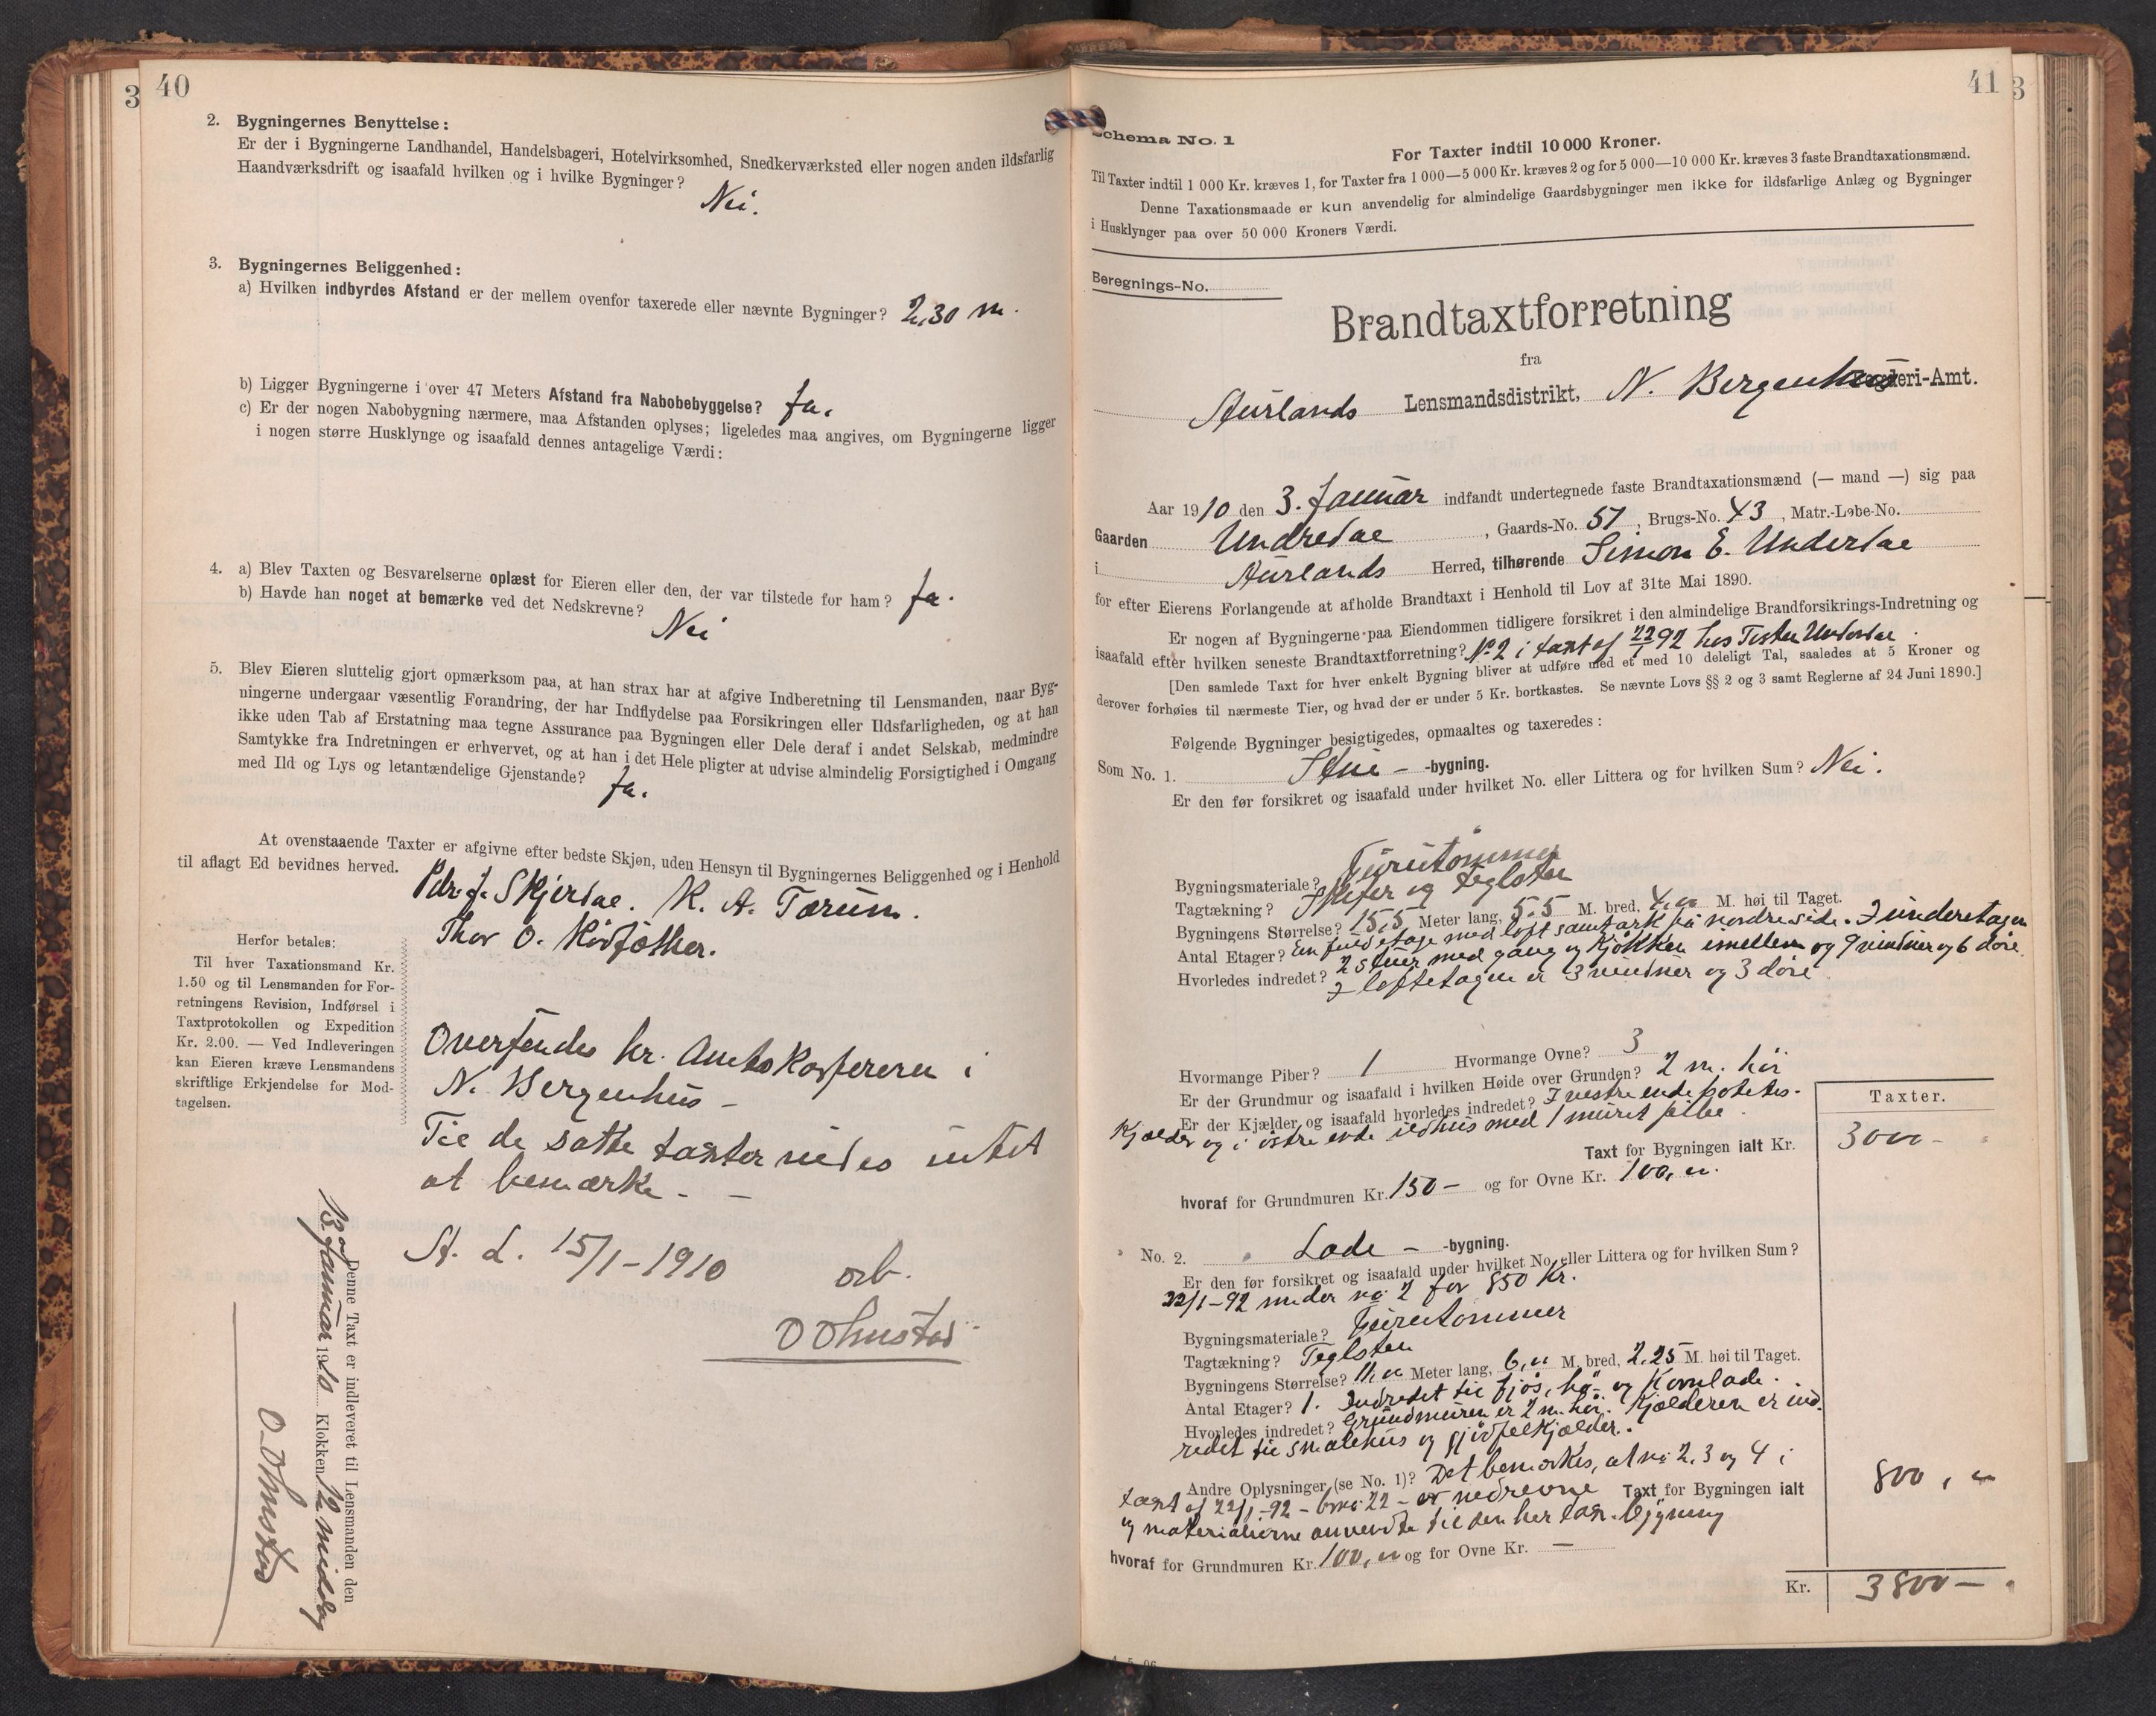 3 40
2. Bygningernes Benyttelse:
Er der i Bygningerne Landhandel, Handelsbageri, Hotelvirksomhed, Snedkerværksted eller nogen anden ildsfarlig
Haandværksdrift og isaafald hvilken og i hvilke Bygninger?
Nei.
3. Bygningernes Beliggenhed:
a) Hvilken indbyrdes Afstand er der mellem ovenfor taxerede eller nævnte Bygninger? 2,30 m.
b) Ligger Bygningerne i over 47 Meters Afstand fra Nabobebyggelse? Ja.
c) Er der nogen Nabobygning nærmere, maa Afstanden oplyses; ligeledes maa angives, om Bygningerne ligger
i nogen større Husklynge og isaafald dennes antagelige Værdi:
4. a) Blev Taxten og Besvarelserne oplæst for Eieren eller den, der var tilstede for ham? Ja.
b) Havde han noget at bemærke ved det Nedskrevne?
Nei
5. Blev Eieren sluttelig gjort opmærksom paa, at han strax har at afgive Indberetning til Lensmanden, naar Byg-
ningerne undergaar væsentlig Forandring, der har Indflydelse paa Forsikringen eller Ildsfarligheden, og at han
ikke uden Tab af Erstatning maa tegne Assurance paa Bygningen eller Dele deraf i andet Selskab, medmindre
Samtykke fra Indretningen er erhvervet, og at han i det Hele pligter at udvise almindelig Forsigtighed i Omgang
med Ild og Lys og letantændelige Gjenstande? Ja.
At ovenstaaende Taxter er afgivne efter bedste Skjøn, uden Hensyn til Bygningernes Beliggenhed og i Henhold
til aflagt Ed bevidnes herved.
Pdr. J. Skjerdae. K. A. Tærum.
Thor O.
Herfor betales:
Til hver Taxationsmand Kr.
1.50 og til Lensmanden for For-
retningens Revision, Indførsel i
Taxtprotokollen og Expedition
Kr. 2.00. — Ved Indleveringen
kan Eieren kræve Lensmandens
skriftlige Erkjendelse for Mod-
tagelsen.
Oversendes hr. Amtskassereren i
N. Bergenhus –
Til de satte taxter vides intet
at bemærke. –
A. L. 15/1-1910 erb.
O Ohnstad
Denne Taxt er indleveret til Lensmanden den
13de Januar 1910 Klokken 12 middag
O. Ohnstad
41 3
Schema No. 1
For Taxter indtil 10 000 Kroner.
Til Taxter indtil 1 000 Kr. kræves 1, for Taxter fra 1 000—5 000 Kr. kræves 2 og for 5 000—10 000 Kr. kræves 3 faste Brandtaxationsmænd.
Denne Taxationsmaade er kun anvendelig for almindelige Gaardsbygninger men ikke for ildsfarlige Anlæg og Bygninger
i Husklynger paa over 50 000 Kroners Værdi.
Beregnings-No.
Brandtaxtforretning
fra
Aurlands Lensmandsdistrikt, N. Bergenhus Fogderi-Amt.
Aar 1910 den 3. Januar indfandt undertegnede faste Brandtaxationsmænd (— mand —) sig paa
Gaarden Undredae, Gaards-No. 51, Brugs-No. 43, Matr.-Løbe-No.
i Aurlands Herred, tilhørende Simon E. Underdae
for efter Eierens Forlangende at afholde Brandtaxt i Henhold til Lov af 31te Mai 1890.
Er nogen af Bygningerne paa Eiendommen tidligere forsikret i den almindelige Brandforsikrings-Indretning og
isaafald efter hvilken seneste Brandtaxtforretning? No 2 i taxt af 22/1 92 hos Underdae
[Den samlede Taxt for hver enkelt Bygning bliver at udføre med et med 10 deleligt Tal, saaledes at 5 Kroner og
derover forhøies til nærmeste Tier, og hvad der er under 5 Kr. bortkastes. Se nævnte Lovs §§ 2 og 3 samt Reglerne af 24 Juni 1890.]
Følgende Bygninger besigtigedes, opmaaltes og taxeredes:
Som No. 1. Stue – -bygning.
Er den før forsikret og isaafald under hvilket No. eller Littera og for hvilken Sum? Nei.
Bygningsmateriale? Furutömmer
Tagtækning? Skifer og teglsten
Bygningens Størrelse? 15,5 Meter lang, 5,5 M. bred, 4,00 M. høi til Taget.
Antal Etager? En fuld etage med loft samt ark på nordre side. I underetagen
Hvorledes indredet? 2 stuer med gang og Kjøkken imellem og 9 vinduer og 6 döre.
I loftetagen er 3 vinduer og 3 döre
Hvormange Piber? 1 Hvormange Ovne? 3
Er der Grundmur og isaafald i hvilken Høide over Grunden? 2 m. höi
Er der Kjælder og isaafald hvorledes indredet? I vestre ende potetes-
Kjælder og i östre ende ildhus med 1 muret pibe.
Taxter.
Taxt for Bygningen ialt Kr. 3000 –
hvoraf for Grundmuren Kr. 150 – og for Ovne Kr. 100,00.
No. 2. Lade – -bygning.
Er den før forsikret og isaafald under hvilket No. eller Littera og for hvilken Sum?
22/1-92 under no 2 for 850 Kr.
Bygningsmateriale? Furutömmer
Tagtækning? Teglsten
Bygningens Størrelse? 11,00 Meter lang, 6,00 M. bred, 2,25 M. høi til Taget.
Antal Etager? 1. Indredet til fjös, hö- og Kornlade.
Hvorledes indredet? Grundmuren er 2 m. höi. Kjælderen er ind-
redet til smalehus og gjödselkjælder.
Andre Oplysninger (se No. 1)? Det bemærkes, at no 2, 3 og 4 i
taxt af 22/1-92 – bno 22 – er nedrevne Taxt for Bygningen ialt 800,00
og materialierne anvendte til den her tax. bygning
hvoraf for Grundmuren Kr. 100,00 og for Ovne Kr. —
Kr. 3800 –